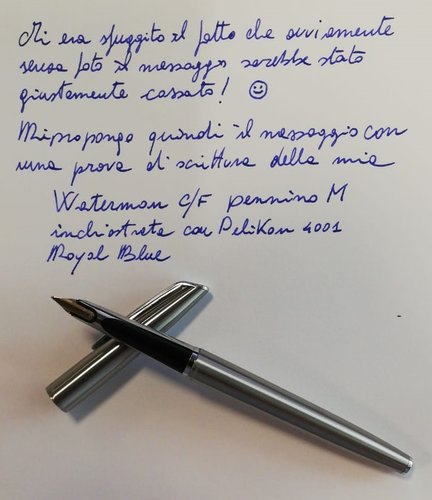 Mi era sfuggito il fatto che ovviamente
senza foto il messaggio sarebbe stato
giustamente cassato! ☺
Mipropongo quindi il messaggio con
una prova di scrittura della mia
Waterman C/F pennino M
inchiostrata con Pelikan 4001
Royal Blue